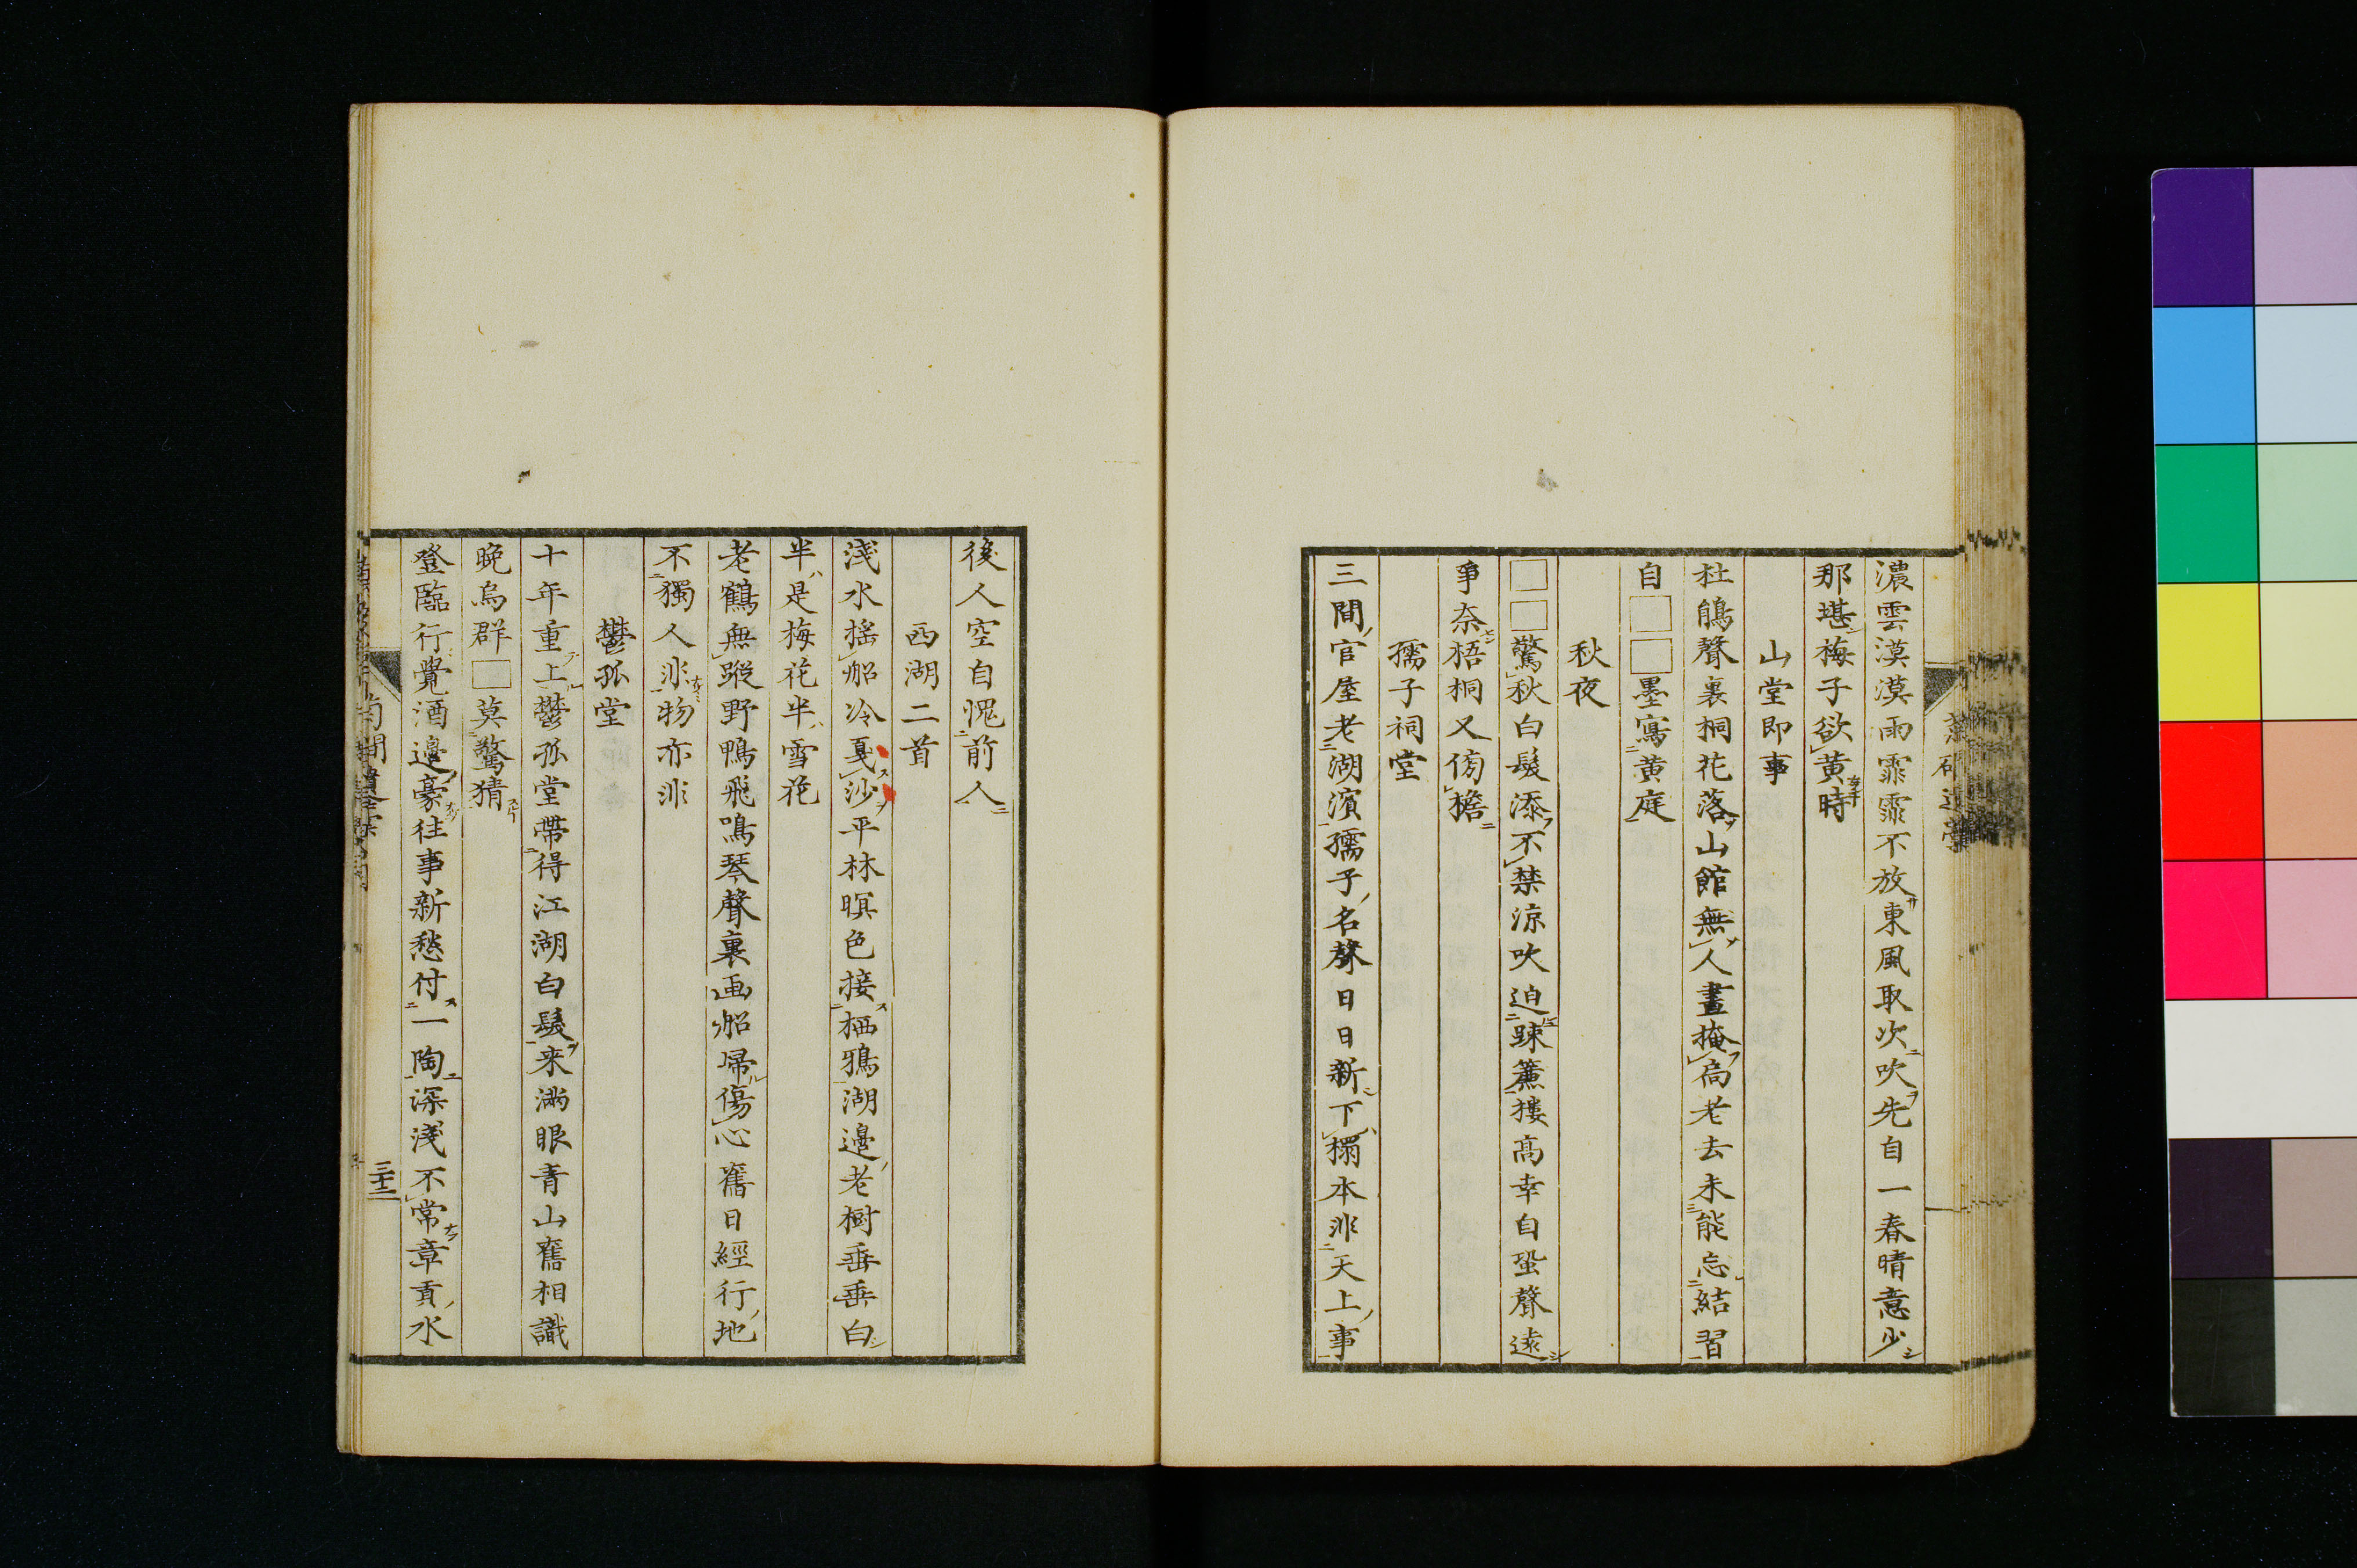 濃雲漠漠雨霏霏不放東風取次吹先自一春晴意少
那堪梅子欲黄時
山堂即事
杜鵑聲裏桐花落山館無人晝掩扃老去未能忘結習
自□□墨寫黄庭
秋夜
□□驚秋白髮添不禁涼吹迫踈簾樓高幸自蛩聲遠
爭奈梧桐又傍檐
孺子祠堂
三間官屋老湖濱孺子名聲日日新下榻本非天上事
後人空自愧前人
西湖二首
淺水揺船冷戛沙平林暝色接栖鴉湖邊老樹垂垂白
半是梅花半雪花
老鶴無蹤野鴨飛鳴琴聲裏画船歸傷心舊日經行地
不獨人非物亦非
鬱孤堂
十年重上鬱孤堂帶得江湖白髮来滿眼青山舊相識
晩烏群□莫驚猜
登臨行覺酒邊豪往事新愁付一陶深淺不常章貢水
三十二